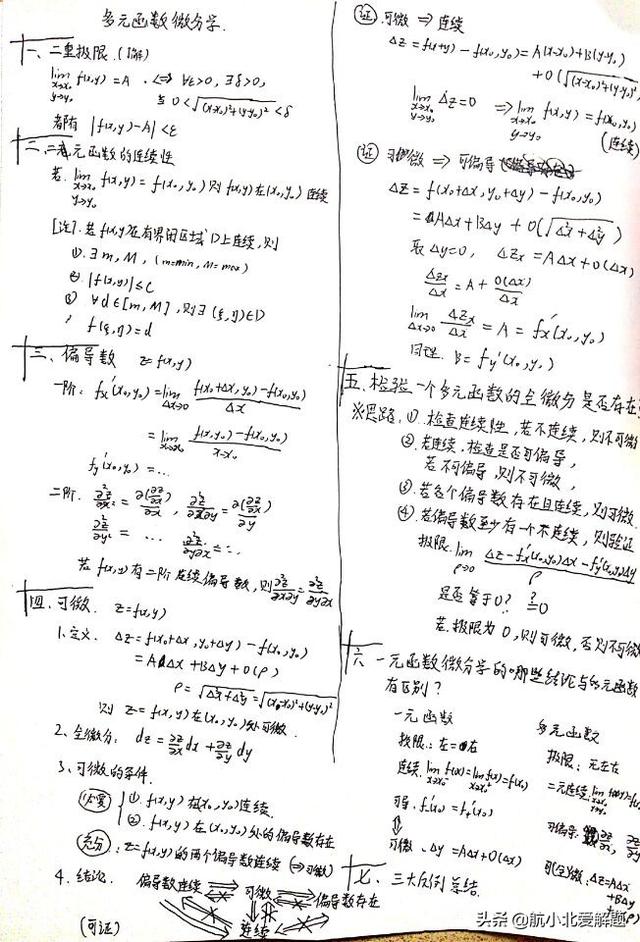 多元函数微分学.
一、二重极限.(了解)
lim_{x→x₀, y→y₀} f(x,y)=A . ⟺ ∀ε>0, ∃δ>0,
当 0<√((x-x₀)²+(y-y₀)²) <δ
都有 |f(x,y)-A|<ε
二、二元函数的连续性
若 lim_{x→x₀, y→y₀} f(x,y)=f(x₀,y₀) 则 f(x,y)在(x₀,y₀) 连续
[注]. 若 f(x,y)在有界闭区域 D 上连续, 则
①. ∃ m, M, (m=min, M=max)
②. |f(x,y)|≤C
③ ∀d∈[m, M], 则∃ (ξ,η)∈D
f(ξ,η)=d
三、偏导数 z=f(x,y)
一阶: fx'(x₀,y₀)=lim_{Δx→0} (f(x₀+Δx,y₀)-f(x₀,y₀))/Δx
=lim_{x→x₀} (f(x,y₀)-f(x₀,y₀))/(x-x₀)
fy'(x₀,y₀)=...
二阶. ∂²z/∂x²=∂(∂z/∂x)/∂x, ∂²z/∂x∂y=∂(∂z/∂x)/∂y
∂²z/∂y²= ... ∂²z/∂y∂x=...
若 f(x,y)有二阶连续偏导数, 则∂²z/∂x∂y=∂²z/∂y∂x
四、可微. z=f(x,y)
1.定义. Δz=f(x₀+Δx,y₀+Δy)-f(x₀,y₀)
=AΔx+BΔy+o(ρ)
ρ=√(Δ²x+Δ²y)=√((x-x₀)²+(y-y₀)²)
则 z=f(x,y)在(x₀,y₀)处可微.
2、全微分: dz=∂z/∂x dx+∂z/∂y dy
3、可微的条件.
必要 ①. f(x,y)在(x₀,y₀)连续.
②. f(x,y)在(x₀,y₀)处的偏导数存在
充分: z=f(x,y)的两个偏导数连续(⇒可微)
4. 结论. 偏导数连续 可微 偏导数存在
连续
(可证)
证 可微 ⇒ 连续
Δz=f(x,y)-f(x₀,y₀)=A(x-x₀)+B(y-y₀)
+o(√((x-x₀)²+(y-y₀)²))
lim_{x→x₀, y→y₀} Δz=0 ⇒ lim_{x→x₀, y→y₀} f(x,y)=f(x₀,y₀)
(连续)
证 可微 ⇒ 可偏导
Δz=f(x₀+Δx,y₀+Δy)-f(x₀,y₀)
=AΔx+BΔy+o(√(Δ²x+Δ²y))
取 Δy=0, Δzx=AΔx+o(Δx)
Δzx/Δx=A+o(Δx)/Δx
lim_{Δx→0} Δzx/Δx=A=fx'(x₀,y₀)
同理. B=fy'(x₀,y₀)
五.检验一个多元函数的全微分是否存在
※思路. ①.检查连续性, 若不连续, 则不可微
②.若连续, 检查是否可偏导,
若不可偏导, 则不可微,
③.若各个偏导数存在且连续, 则可微.
④.若偏导数至少有一个不连续, 则验证
极限. lim_{ρ→0} (Δz-fx'(x₀,y₀)Δx-fy'(x₀,y₀)Δy)/ρ
是否等于0? ?=0
若极限为0, 则可微, 否则不可微
六 一元函数微分学的哪些结论与多元函数
有区别?
一元函数 多元函数
极限: 左=右 极限: 无左右
连续 lim_{x→x₀⁻} f(x)=lim_{x→x₀⁺} f(x)=f(x₀) 二元连续
可导. f₋'(x₀)=f₊'(x₀) 可偏导: ∂z/∂x, ∂z/∂y
⇕
可微. Δy=AΔx+o(Δx) 可(全)微. Δz=AΔx
+BΔy
七、三大反例总结.
头条 @航小北爱解题